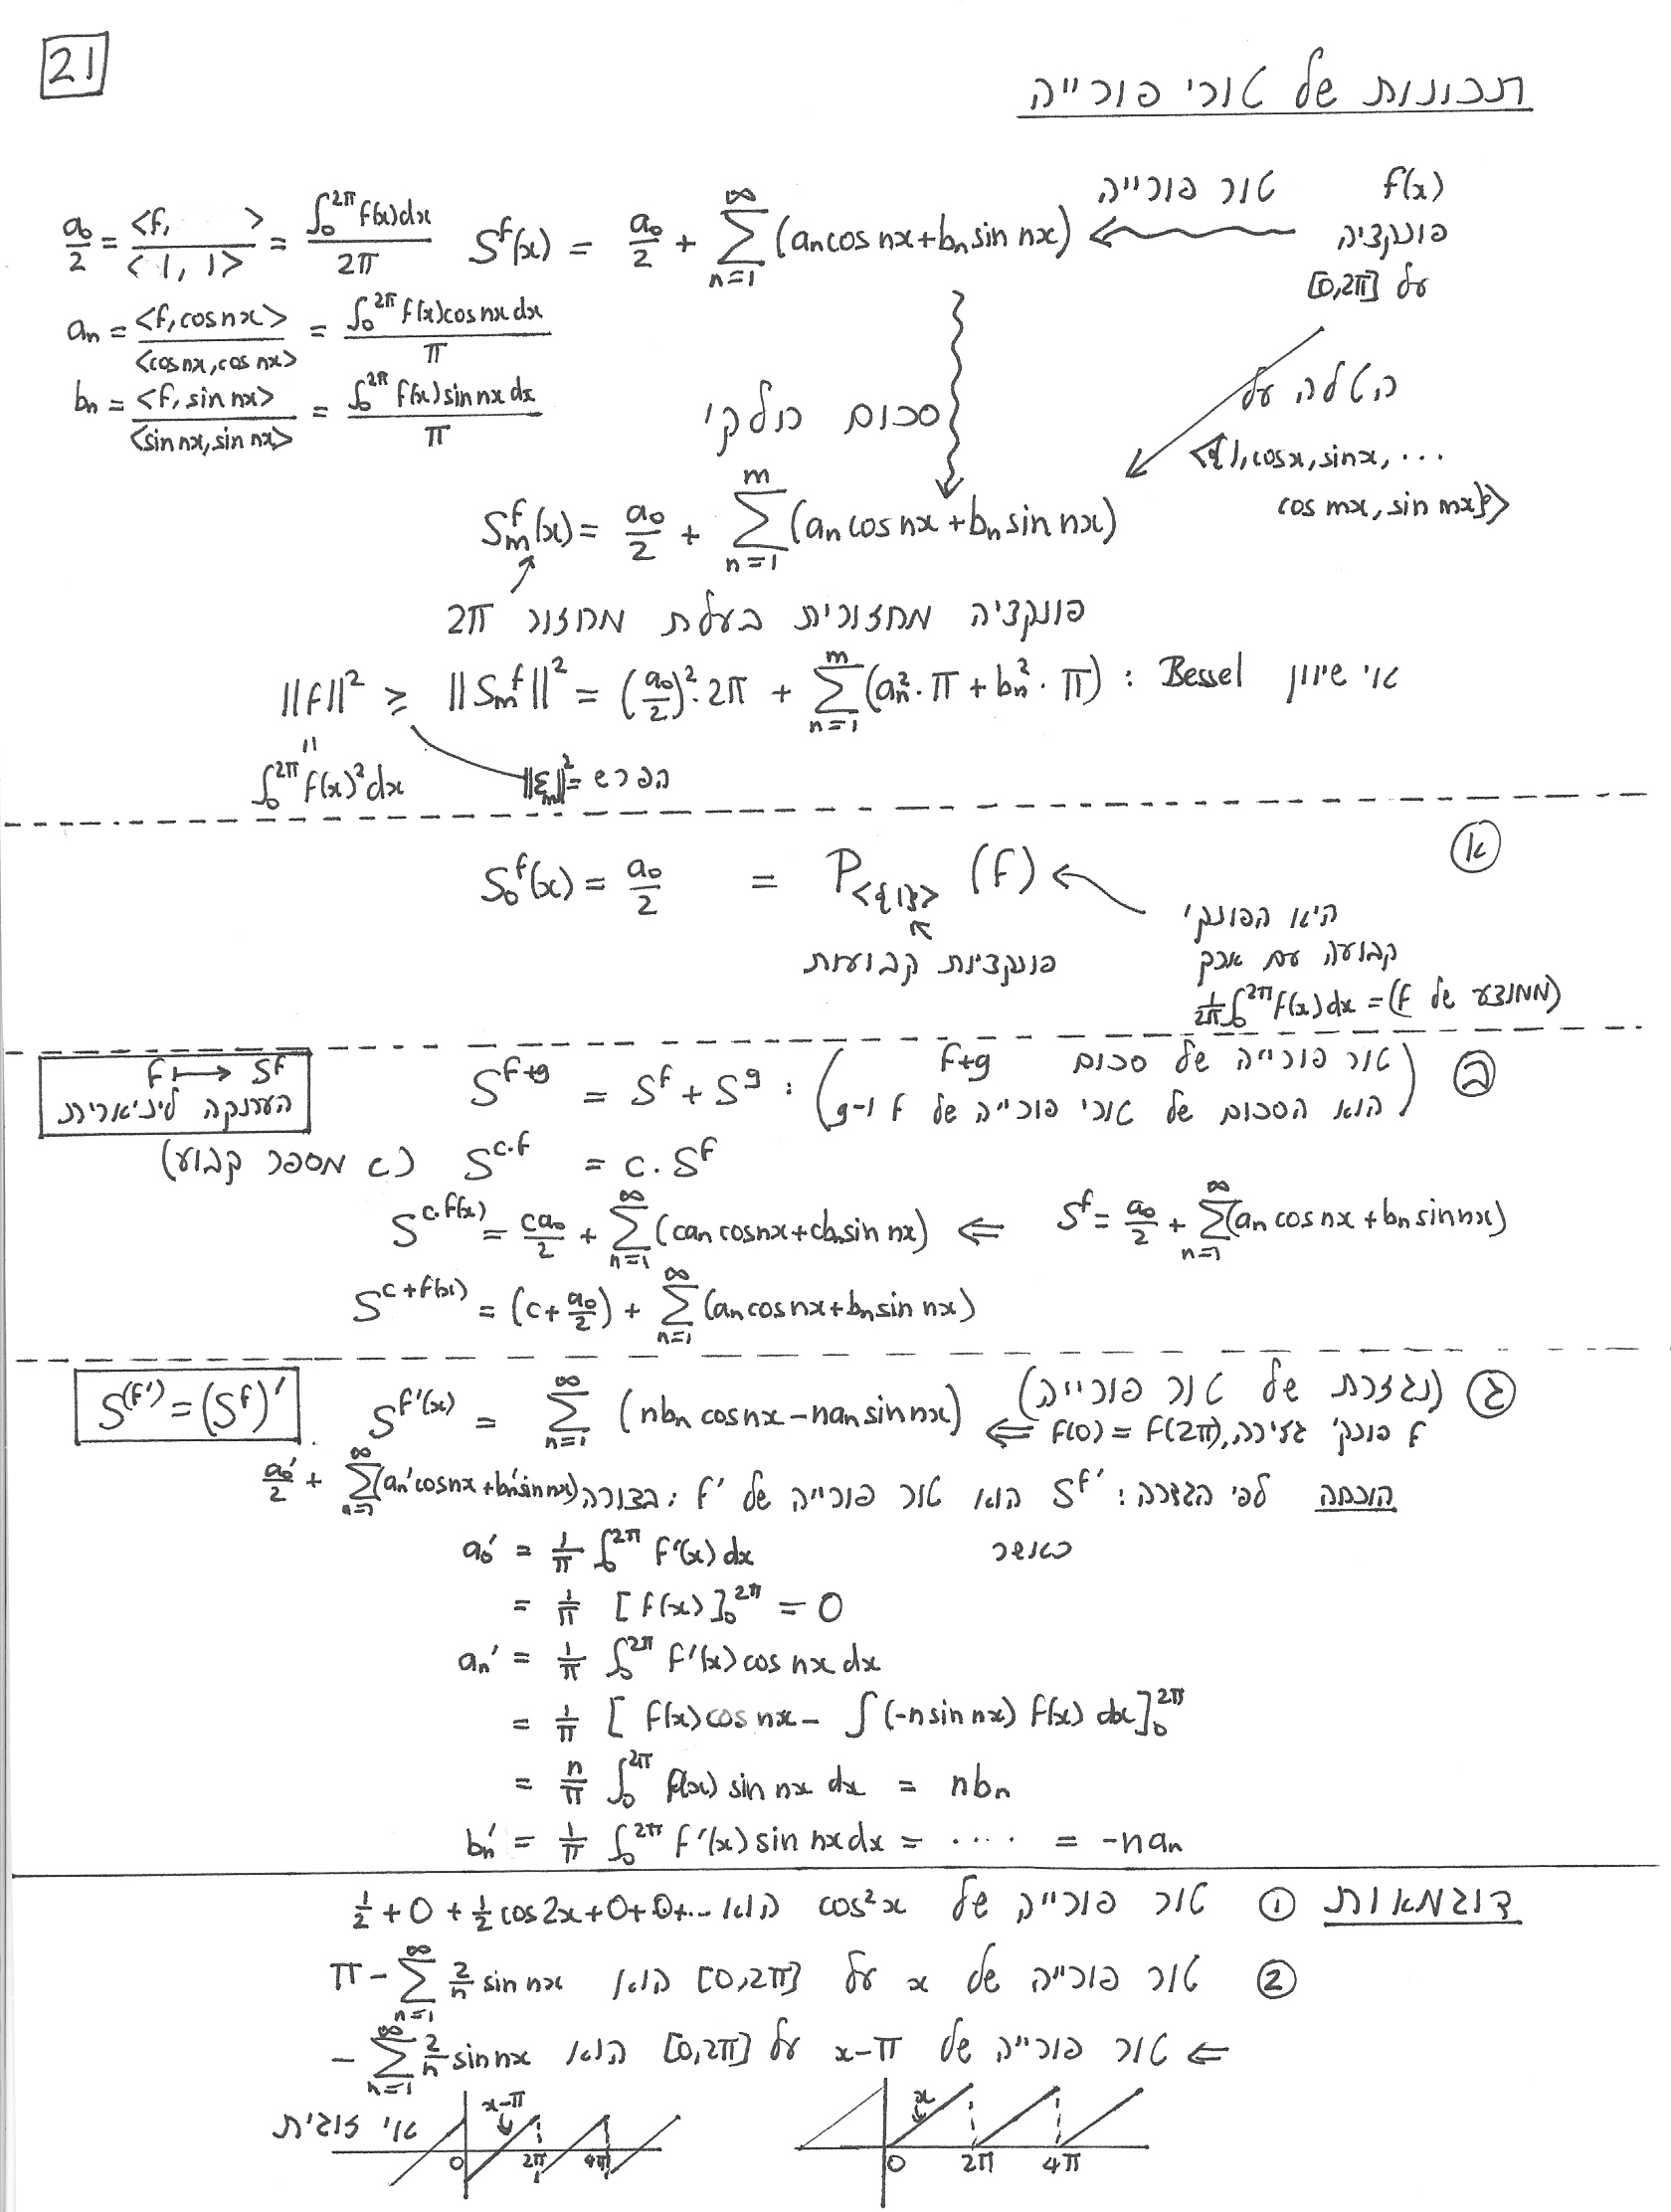 21
תכונות של טורי פורייה
f(x) פונקציה על [0,2π]
טור פורייה
S^f(x) = a₀/2 + Σ_{n=1}^{∞} (aₙ cos nx + bₙ sin nx)
a₀/2 = <f, >/<1, 1> = ∫₀^{2π} f(x)dx / 2π
aₙ = <f, cos nx>/<cos nx, cos nx> = ∫₀^{2π} f(x) cos nx dx / π
bₙ = <f, sin nx>/<sin nx, sin nx> = ∫₀^{2π} f(x) sin nx dx / π
סכום חלקי
הטלה על
<{1, cosx, sinx, ...
cos mx, sin mx}>
S_m^f(x) = a₀/2 + Σ_{n=1}^{m} (aₙ cos nx + bₙ sin nx)
פונקציה מחזורית בעלת מחזור 2π
אי שיוון Bessel : ||f||² ≥ ||S_m^f||² = (a₀/2)²·2π + Σ_{n=1}^{m} (aₙ²·π + bₙ²·π)
||
∫₀^{2π} f(x)² dx
הפרש = ||ε_m||²
א
S₀^f(x) = a₀/2 = P_{<{1}>} (f)
פונקציות קבועות
היא הפונק'
קבועה עם
1/2π ∫₀^{2π} f(x)dx = (ממוצע של f)
ב
(טור פורייה של סכום f+g
הוא הסכום של טורי פורייה של f ו-g)
: S^{f+g} = S^f + S^g
f ⟼ S^f
העתקה ליניארית
S^{c·f} = c·S^f (c מספר קבוע)
S^f = a₀/2 + Σ_{n=1}^{∞} (aₙ cos nx + bₙ sin nx) ⇐ S^{c·f(x)} = ca₀/2 + Σ_{n=1}^{∞} (caₙ cos nx + cbₙ sin nx)
S^{c+f(x)} = (c + a₀/2) + Σ_{n=1}^{∞} (aₙ cos nx + bₙ sin nx)
ג (נגזרת של טור פורייה)
f פונק' גזירה, f(0) = f(2π) ⇐
S^{f'(x)} = Σ_{n=1}^{∞} (nbₙ cos nx - naₙ sin nx)
S^{(f')} = (S^f)'
הוכחה לפי הגדרה: S^{f'} הוא טור פורייה של f' : בצורה a₀'/2 + Σ_{n=1}^{∞} (aₙ' cos nx + bₙ' sin nx)
כאשר
a₀' = 1/π ∫₀^{2π} f'(x) dx
= 1/π [f(x)]₀^{2π} = 0
aₙ' = 1/π ∫₀^{2π} f'(x) cos nx dx
= 1/π [f(x) cos nx - ∫(-n sin nx) f(x) dx]₀^{2π}
= n/π ∫₀^{2π} f(x) sin nx dx = nbₙ
bₙ' = 1/π ∫₀^{2π} f'(x) sin nx dx = ···· = -naₙ
דוגמאות ① טור פורייה של cos²x הוא 1/2 + 0 + 1/2 cos2x + 0 + 0 + ...
② טור פורייה של x על [0,2π] הוא π - Σ_{n=1}^{∞} 2/n sin nx
⇐ טור פורייה של x-π על [0,2π] הוא - Σ_{n=1}^{∞} 2/n sin nx
x
0 2π 4π
אי זוגית
x-π
0 2π 4π